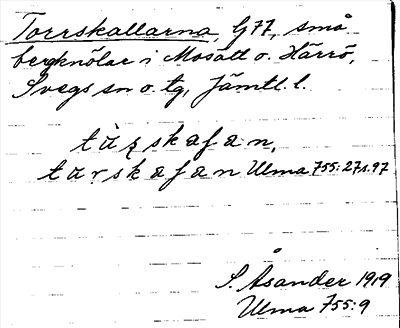 Torrskallarna, G77, små
bergknölar i Mosätt o. Härrö,
Svegs sn o. tg, Jämtl. l.
tàṛskafan,
tarskafan Ulma 755:27 s. 97
S. Åsander 1919
Ulma 755:9